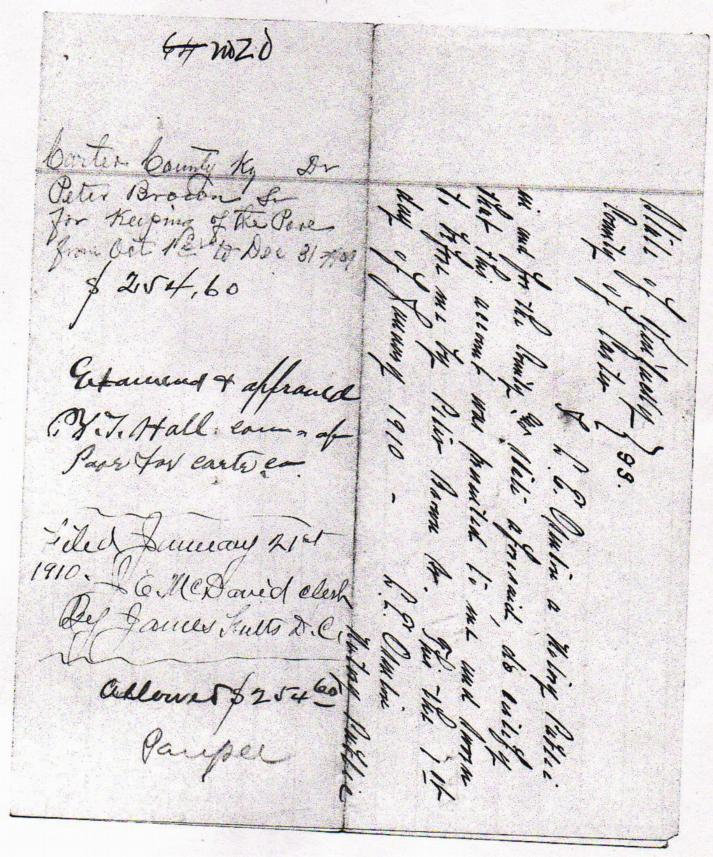 No 20
Carter County Ky Dr
Peter Brown Sr
for Keeping of the Pore
from Oct 1st to Dec 31 1909
$ 254,60
Examend & approued
P.V.T. Hall com of
Pore for carter co
Filed January 21st
1910. J E. McDavid clerk
By James Fults D.C.
allowed $ 254 60
Pauper
State of Kentucky } SS.
County of Carter
I L. E. a Notary Public
in and for the County & State aforesaid, do certify
that this account was presented to me and sworn
to before me by Peter Brown Sr. This the
day of January 1910 -
L. E.
Notary Public